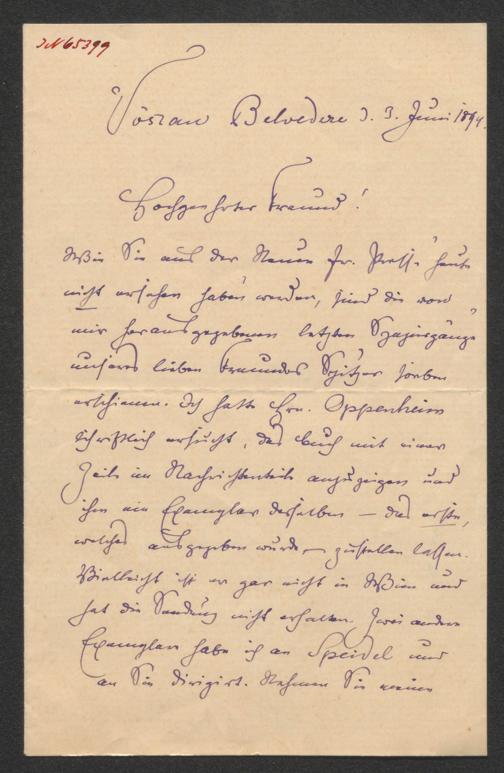 JN 65399
Vöslau Belvedere d. 3. Juni 1894.
Hochgeehrter Freund!
Wie Sie aus der Neuen Fr. Presse heute
nicht ersehen haben werden, sind die von
mir herausgegebenen letzten Spaziergänge
unseres lieben Freundes Spitzer soeben
erschienen. Ich hatte Hrn. Oppenheim
schriftlich ersucht, das Buch mit einer
Zeile im Nachrichtentheile anzuzeigen und
ihm ein Exemplar desselben – das erste,
welches ausgegeben wurde – zustellen lassen.
Vielleicht ist er gar nicht in Wien und
hat die Sendung nicht erhalten. Zwei andere
Exemplare habe ich an Speidel und
an Sie dirigirt. Nehmen Sie meine